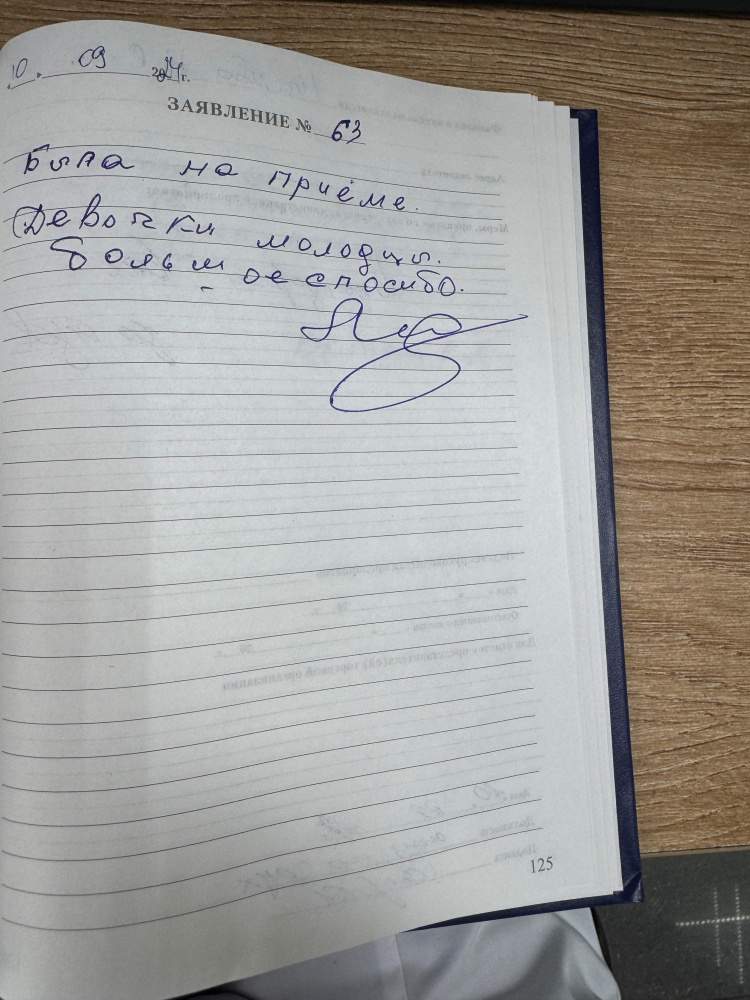 10. 09 2024г.
ЗАЯВЛЕНИЕ № 63
Была на приёме.
Девочки молодцы.
Большое спосибо.
125